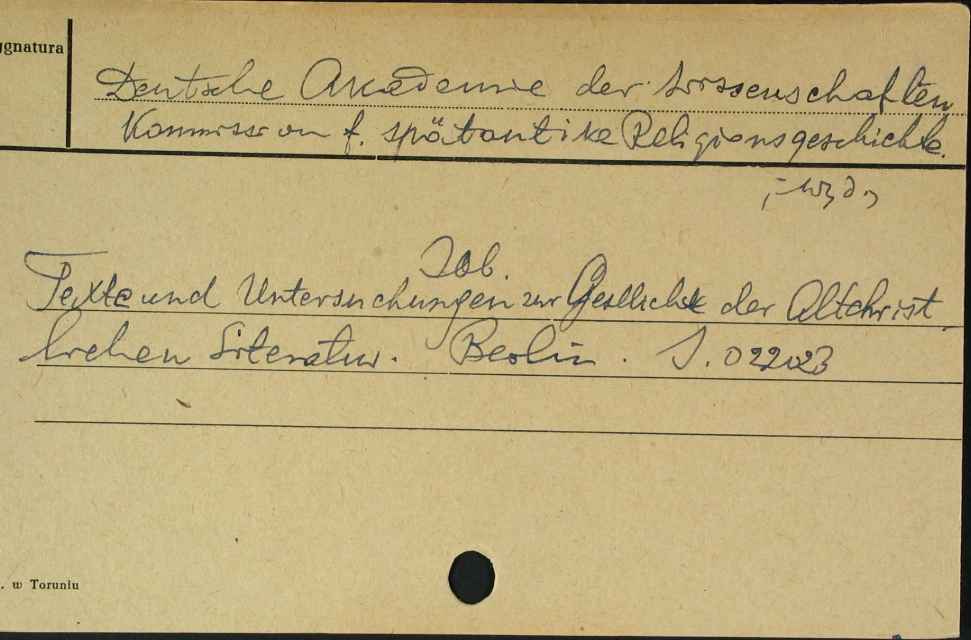 ygnatura
Deutsche Akademie der Wissenschaften
Kommission f. spätantike Religionsgeschichte.
; - wyd.
Zob.
Texte und Untersuchungen zur Geschichte der Altchrist
lichen Literatur. Berlin. S. 022023
. w Toruniu